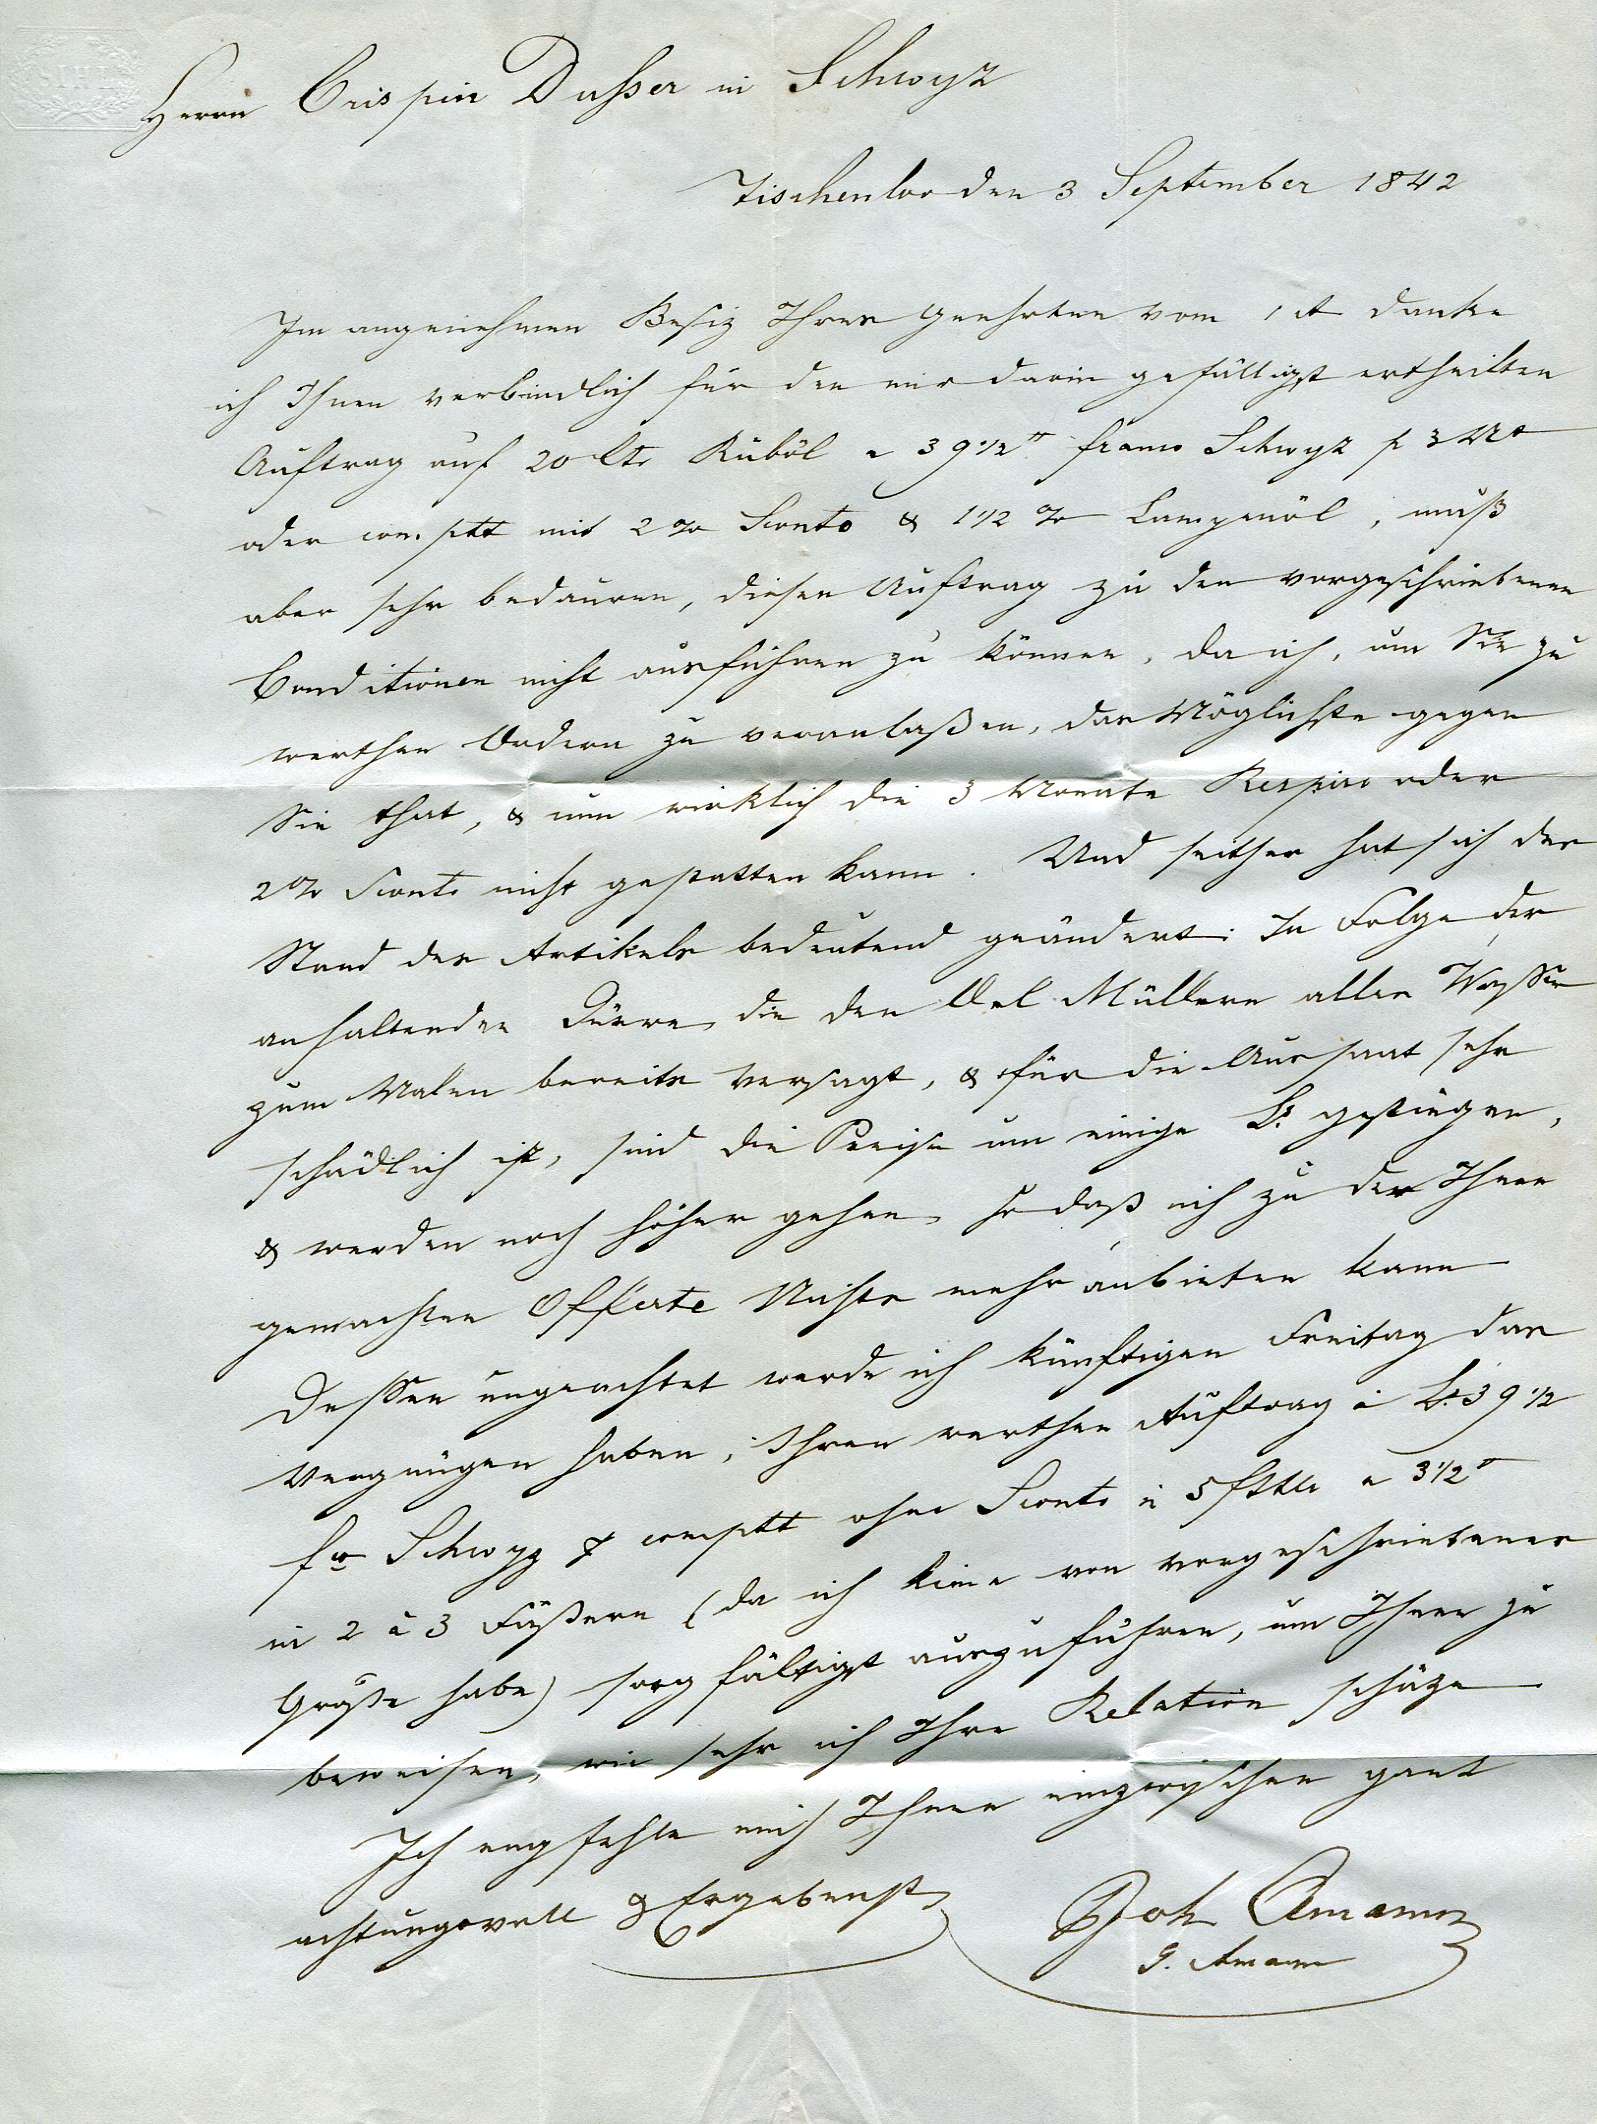 Herrn Crispin Dusser in Schwyz
Tischenloo den 3 September 1842
Im angenehmen Besiz Ihres Geehrten vom 1 ct danke
ich Ihnen verbindlich für den mir darin gefälligst ertheilten
Auftrag auf 20 Ctr Rüböl a 39 1/2 franco Schwyz p 3 Mt
oder comptt mit 2 % Sconto & 1 1/2 % Lampenöl, muß
aber sehr bedauren, diesen Auftrag zu den vorgeschriebenen
Conditionen nicht ausführen zu können, da ich, um Sie zu
werthen Ordern zu veranlaßen, das Möglichste gegen
Sie that, & nun wirklich die 3 Monate Respiro oder
2 % Sconto nicht gestatten kann. Und seither hat sich der
Stand des Artikels bedeutend geändert: In Folge der
anhaltenden Dürre, die den Oel Müllern alles Wasser
zum Malen bereits versagt, & für die Aussaat sehr
schädlich ist, sind die Preise um einige gestiegen,
& werden noch höher gehen, so daß ich zu der Ihnen
gemachten Offerte Nichts mehr anbieten kann
Dessen ungeachtet werde ich künftigen Freitag das
Vergnügen haben, Ihren werthen Auftrag à 39 1/2
fco Schwyz p comptt ohne Sconto in 5 a 3 1/2
in 2 à 3 Fäßern (da ich keine von vorgeschriebener
Größe habe) sorgfältigst auszuführen, um Ihnen zu
beweisen, wie sehr ich Ihre Relation schäze
Ich empfehle mich Ihnen inzwischen ganz
achtungsvoll & Ergebenst,
Joh Amann
G. Amann